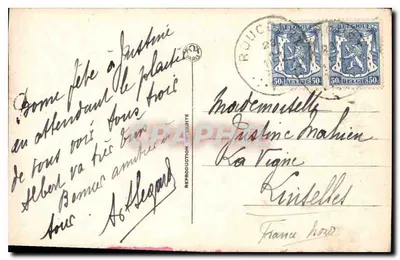 Bonne fête à Justine
en attendant le plaisir
de vous voir tous trois
Albert va très bien
Bonnes amitiés à
tous.
A. Segard
REPRODUCTION INTERDITE
ROUC
BELGIE BELGIQUE
50 50 50 50
Mademoiselle
Justine Mahieu
La Vigne
Linselles
France Nord